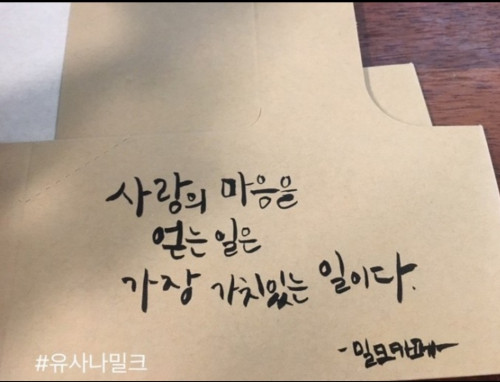 사랑의 마음을
얻는 일은
가장 가치있는 일이다.
-밀크카페-
#유사나밀크